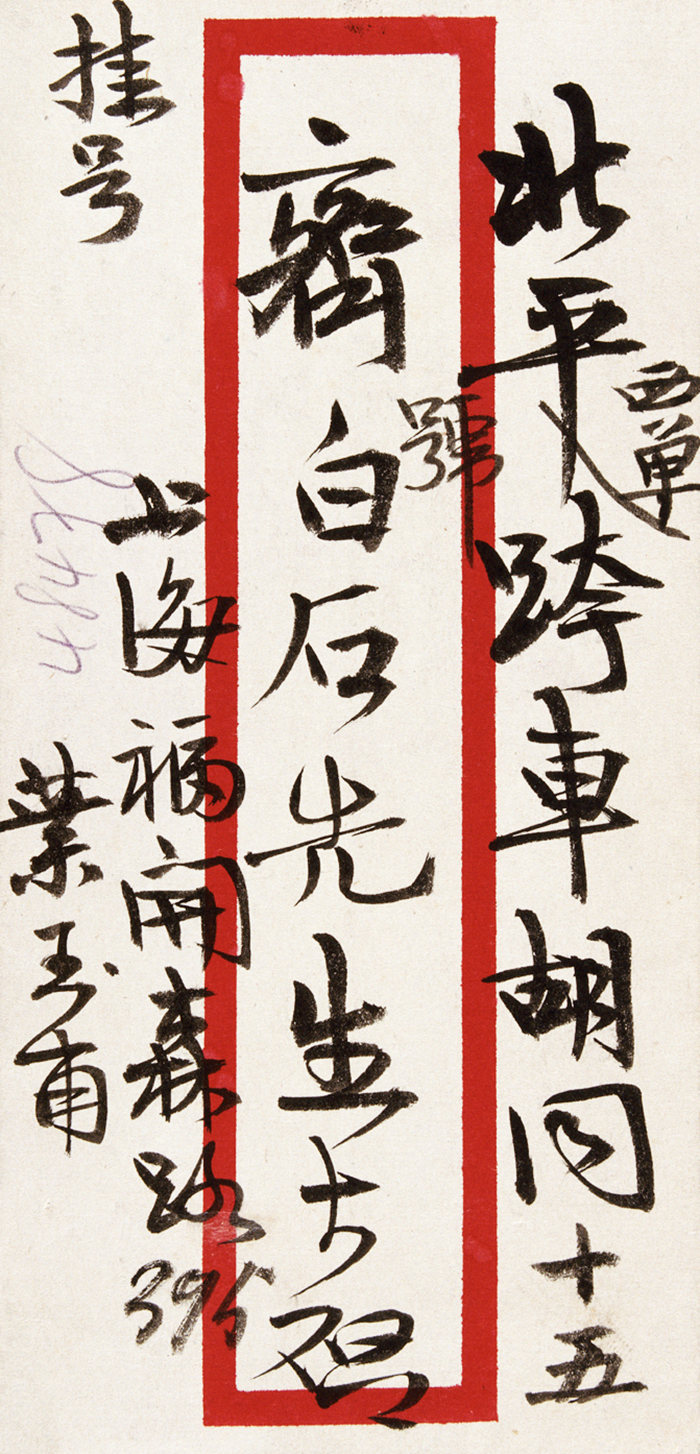 北平西單跨車胡同十五
號
齊白石先生大启
上海福開森路395
葉玉甫
挂号